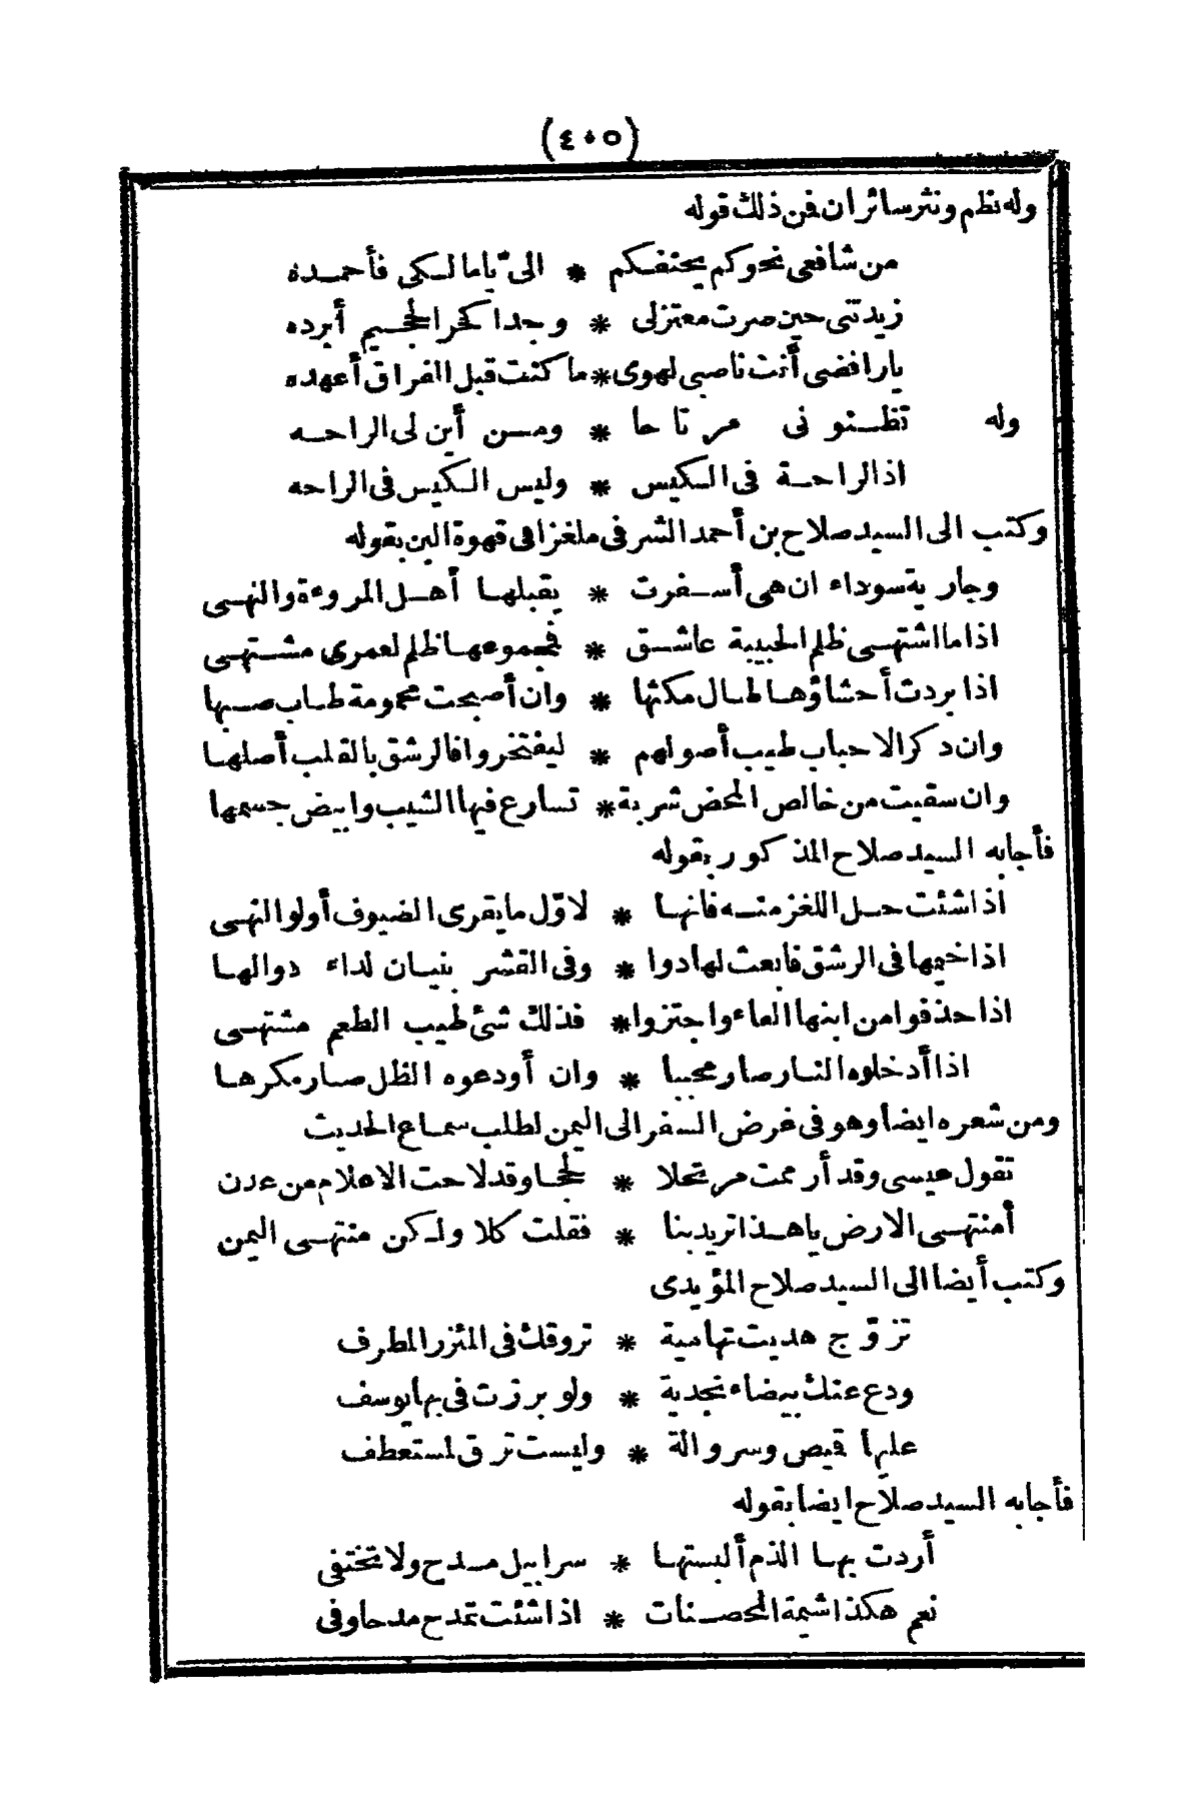 (٤٠٥)
وله نظم ونثر سائران فمن ذلك قوله
من شافعى نحوكم يحنفكم * الىّ يا مالكى فأحمده
زيدتنى حين صرت معتزلى * وجدا كحر الجحيم أبرده
يا رافضى أنت ناصبى لهوى * ما كنت قبل الفراق أعهده
وله تظنونى مرتاحا * ومن أين لى الراحه
اذا الراحة فى الكيس * وليس الكيس فى الراحه
وكتب الى السيد صلاح بن أحمد الشرفى ملغزا فى قهوة البن بقوله
وجارية سوداء ان هى أسفرت * يقبلها أهل المروءة والنهى
اذا ما اشتهى ظلم الحبيبة عاشق * فمجموعها ظلم لعمرى مشتهى
اذا بردت أحشاؤها طال مكثها * وان أصبحت محمومة طاب صبها
وان ذكر الاحباب طيب أصولهم * ليفتخروا فالرشق بالقلب أصلها
وان سقيت من خالص المحض شربة * تسارع فيها الشيب وابيض جسمها
فأجابه السيد صلاح المذكور بقوله
اذا شئت حل اللغز منه فانها * لاوّل ما يقرى الضيوف أولو النهى
اذا خيمها فى الرشق فابعث لها دوا * وفى القشر بنيان لداء دوالها
اذا حذفوا من ابنها الماء واجتزوا * فذلك شئ طيب الطعم مشتهى
اذا أدخلوه النار صار محببا * وان أودعوه الظل صار مكرها
ومن شعره ايضا وهو فى غرض السفر الى اليمن لطلب سماع الحديث
تقول عيسى وقد أزمعت مرتحلا * لحجا وقد لاحت الاعلام من عدن
أمنتهى الارض يا هذا تريد بنا * فقلت كلا ولكن منتهى اليمن
وكتب أيضا الى السيد صلاح المؤيدى
تزوّج هديت تهامية * تروقك فى المئزر المطرف
ودع عنك بيضاء نجدية * ولو برزت فى بها يوسف
عليها قميص وسروالة * وليست ترق لمستعطف
فأجابه السيد صلاح ايضا بقوله
أردت بها الذم ألبستها * سرابيل مدح ولا تختفى
نعم هكذا شيمة المحصنات * اذا شئت تمدح مدحا وفى